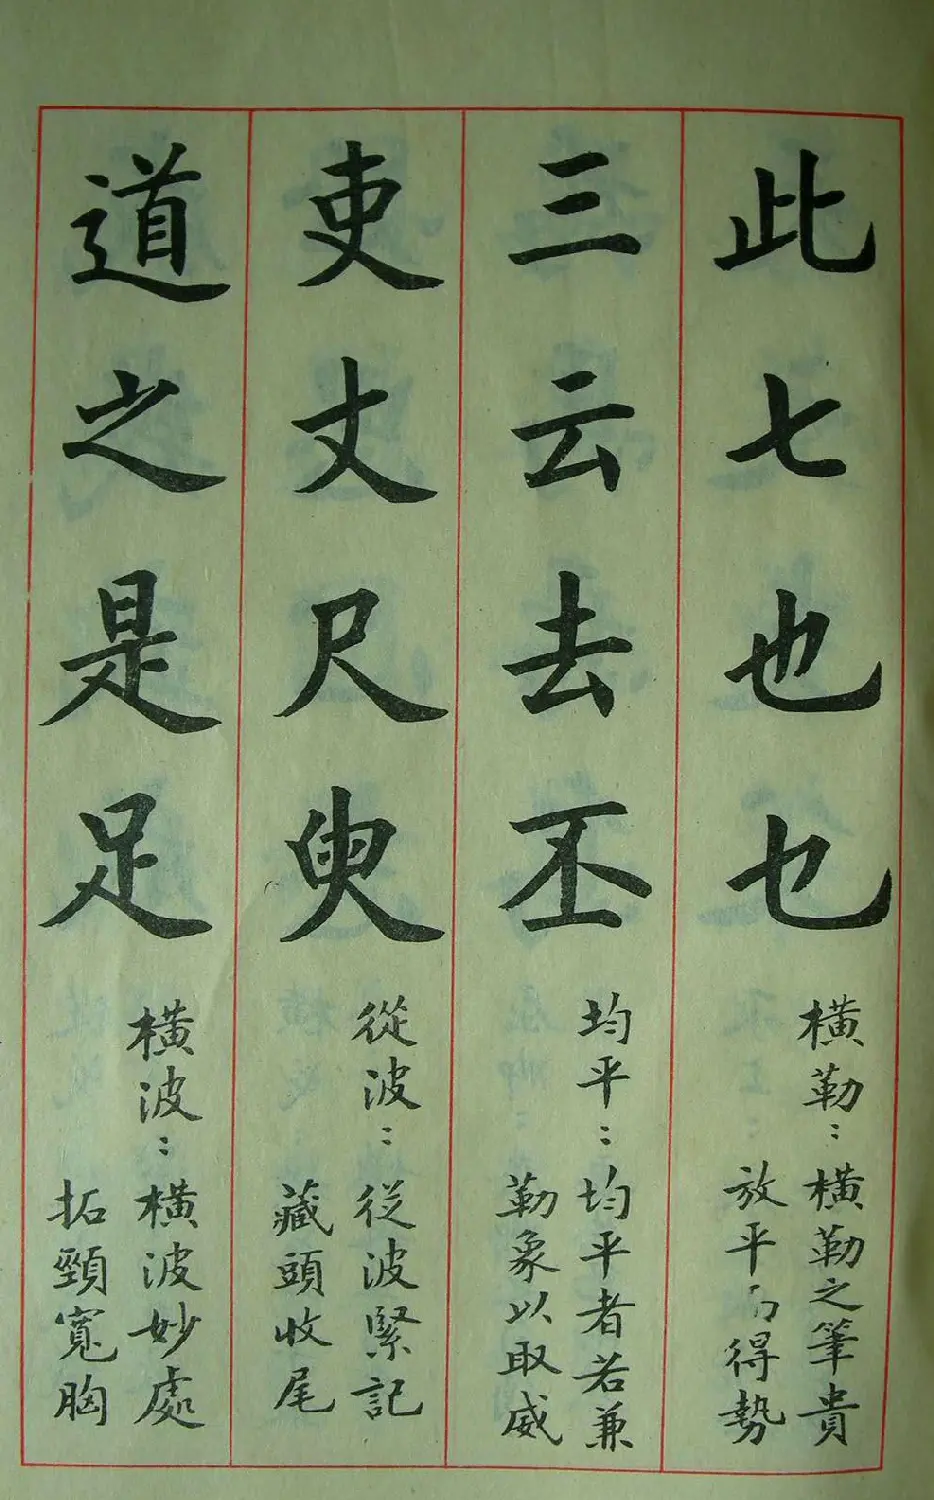 此七也乜
橫勒：橫勒之筆貴
放平而得勢
三云去丕
均平：均平者若兼
勒象以取威
吏丈尺臾
從波：從波緊記
藏頭收尾
道之是足
橫波：橫波妙處
拓頸寬胸